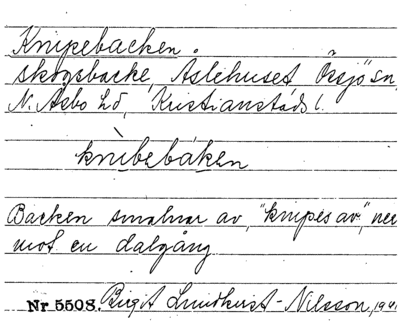 Knipebacken.
skogsbacke, Aslehuset Örsjö sn,
N. Åsbo hd, Kristianstads l.
knìbebáken
Backen smalnar av, "knipes av", ner
mot en dalgång
Nr 5508. Birgit Lundkvist-Nilsson, 1941